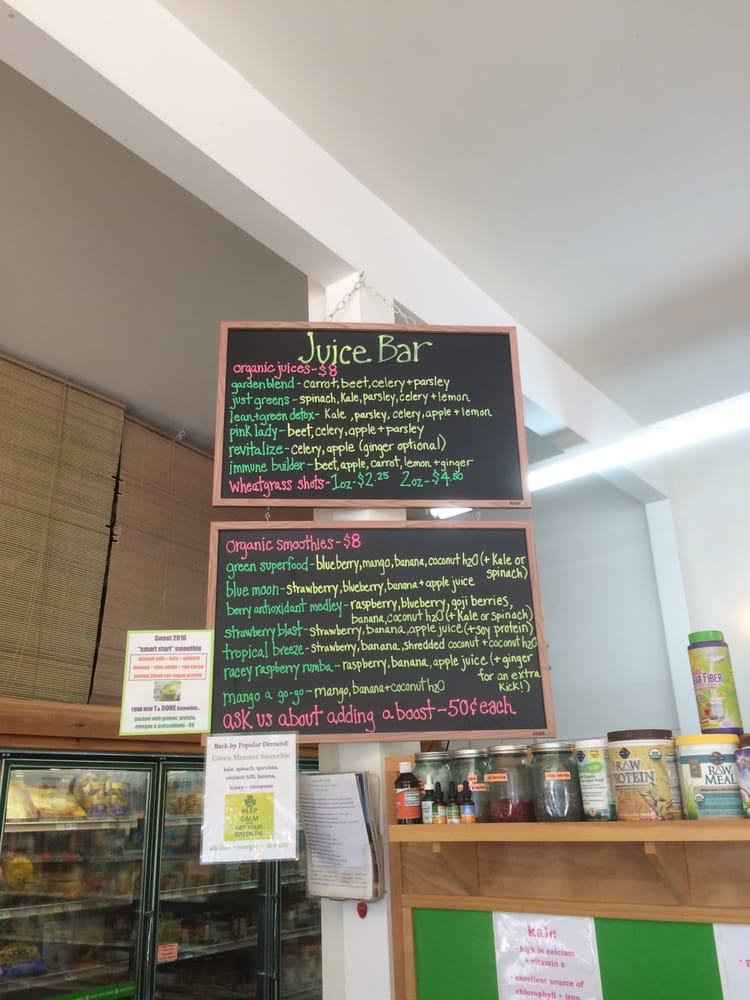 Juice Bar
organic juices-$8
garden blend - carrot, beet, celery + parsley
just greens - spinach, Kale, parsley, celery + lemon
lean+green detox- Kale, parsley, celery, apple + lemon
pink lady - beet, celery, apple + parsley
revitalize - celery, apple (ginger optional)
immune builder - beet, apple, carrot, lemon + ginger
wheatgrass shots - 1oz-$2.25 2oz-$4.50
organic smoothies - $8
green superfood - blueberry, mango, banana, coconut h2O (+ Kale or
spinach)
blue moon - strawberry, blueberry, banana + apple juice
berry antioxidant medley - raspberry, blueberry, goji berries,
banana, coconut h2O (+ Kale or spinach)
strawberry blast - strawberry, banana, apple juice (+ soy protein)
tropical breeze - strawberry, banana, shredded coconut + coconut h2O
racey raspberry rumba - raspberry, banana, apple juice (+ ginger
for an extra
kick!)
mango a go-go - mango, banana + coconut h2O
ask us about adding a boost - 50¢ each
Sweet 2016
"smart start" smoothie
almond milk + kale + spinach
banana + chia seeds + raw cacao
YOUR NEW 1 & DONE Smoothie..
packed with greens, protein,
omegas & antioxidants - $8
Back by Popular Demand!
Green Monster Smoothie
kale, spinach, spirulina,
coconut milk, banana,
honey + cinnamon
KEEP
CALM
GET YOUR
GREEN ON
FIBER
RAW
PROTEIN
RAW
MEAL
goji berries
chia seeds
kale
- high in calcium
+ vitamin a
- excellent source of
chlorophyll + iron